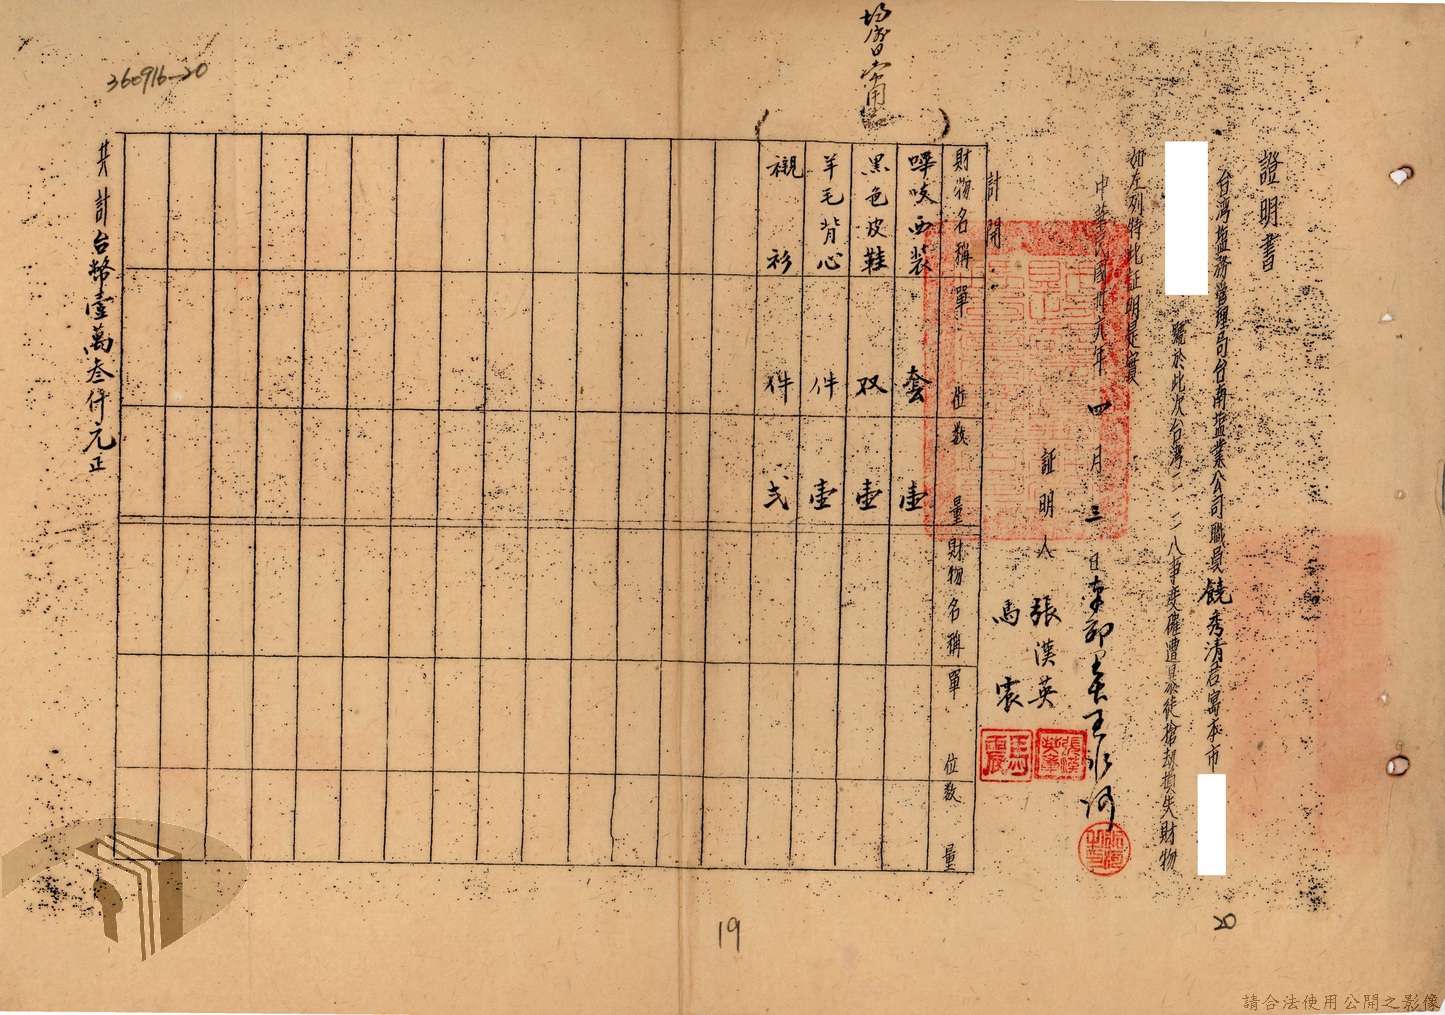 證明書
台湾塩務管理局台南塩業公司職員饒秀清君寓本市
號於此次台湾二二八事变確遭暴徒搶刼損失財物
如左列特此証明是實
中華民國卅六年四月三日
証明人 張漢英
馬宸
計開：
財物名稱 單位 数量 財物名稱 單位 数量
嗶吱西装 套 壹
黑色皮鞋 双 壹
羊毛背心 件 壹
襯衫 件 弍
共計台幣壹萬叁仟元正
360916-20
19
20
請合法使用公開之影像